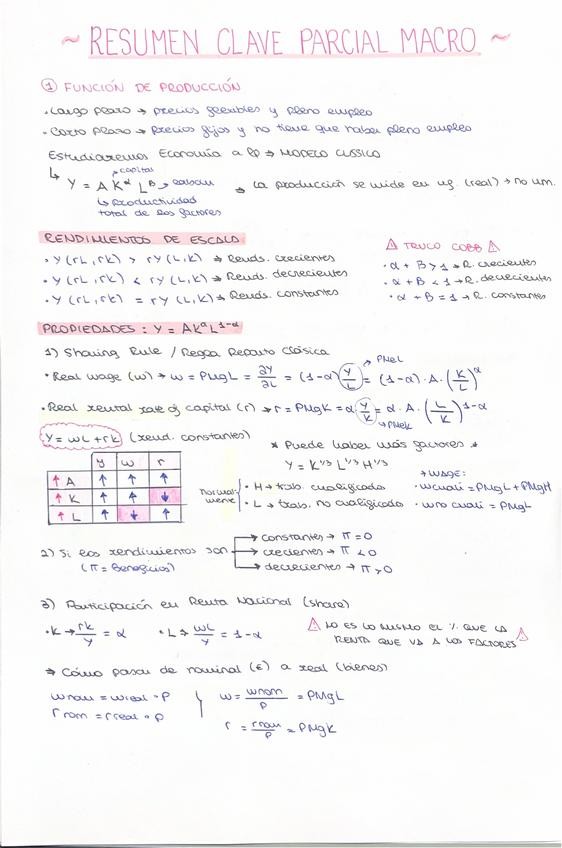 ~ RESUMEN CLAVE PARCIAL MACRO ~
① FUNCIÓN DE PRODUCCIÓN
• Largo plazo → precios flexibles y pleno empleo
• Corto plazo → precios fijos y no tiene que haber pleno empleo
Estudiaremos Economía a lp ⇒ MODELO CLÁSICO
↳ Y = A K^α L^B → labour ⇒ La producción se mide en ug. (real) → no um.
capital
↳ productividad
total de los factores
RENDIMIENTOS DE ESCALA
• Y (rL, rK) > rY (L, K) ⇒ Rends. crecientes
• Y (rL, rK) < rY (L, K) ⇒ Rends. decrecientes
• Y (rL, rK) = rY (L, K) ⇒ Rends. constantes
⚠ TRUCO COBB ⚠
• α + B > 1 → R. crecientes
• α + B < 1 → R. decrecientes
• α + B = 1 → R. constantes
PROPIEDADES : Y = AK^α L^1-α
1) Sharing Rule / Regla Reparto Clásica
• Real wage (w) → w = PMgL = ∂Y/∂L = (1-α) Y/L = (1-α) · A · (K/L)^α
→ PMeL
• Real rental rate of capital (r) → r = PMgK = α · Y/K = α · A · (L/K)^1-α
→ PMeK
Y = wL + rK (rend. constantes)
Y w r
↑ A ↑ ↑ ↑
↑ K ↑ ↑ ↓
↑ L ↑ ↓ ↑
* Puede haber más factores *
Y = K^1/3 L^1/3 H^1/3
Normalmente
• H → trab. cualificados
• L → trab. no cualificados
→ WAGE:
• wcuali = PMgL + PMgH
• wno cuali = PMgL
2) Si los rendimientos son
(π = Beneficios)
→ constantes → π = 0
→ crecientes → π < 0
→ decrecientes → π > 0
3) Participación en Renta Nacional (share)
• K → rK/Y = α • L → wL/Y = 1-α
⚠ NO ES LO MISMO EL % QUE LA
RENTA QUE VA A LOS FACTORES ⚠
⇒ Cómo pasar de nominal (€) a real (bienes)
wnom = wreal · P
rnom = rreal · P
w = wnom/P = PMgL
r = rnom/P = PMgK